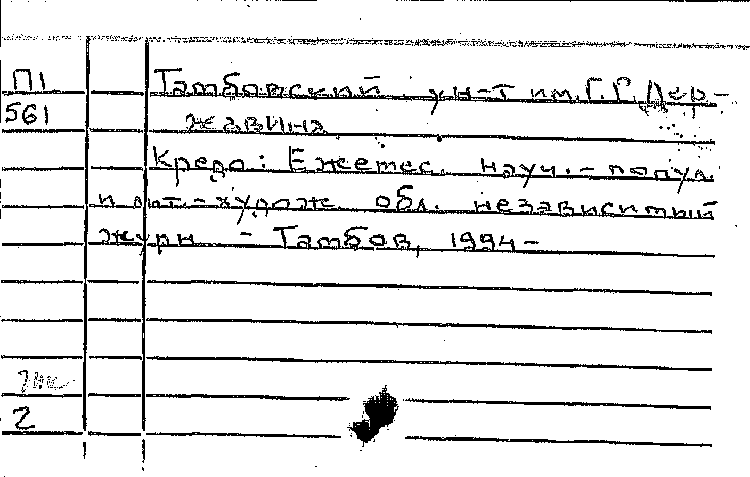 П1 Тамбовский ун-т им. Г.Р. Дер-
561 жавина
Кредо: Ежемес. науч.-попул.
и лит.-худож. обл. независимый
журн - Тамбов, 1994-
2